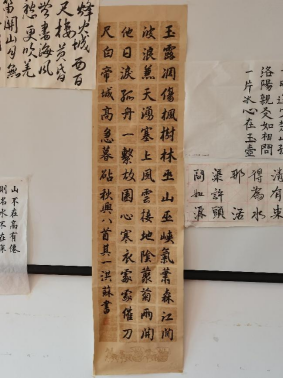 洛陽親友如相問
一片冰心在玉壺
問渠耶得清
如許為有
源頭活水來
玉露凋傷楓樹林巫山巫峽氣蕭森江間
波浪兼天湧塞上風雲接地陰叢菊兩開
他日淚孤舟一繫故園心寒衣處處催刀
尺白帝城高急暮砧秋興八首其一洪蘇書
烽火城西百
尺樓黃昏
海風
更吹羌
笛關山月
山不在高有僊
則名水不在深